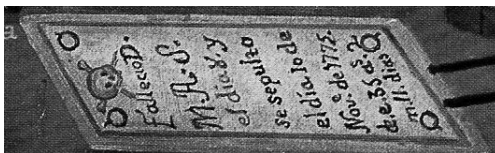 Fallecio D.
M. R. S.
el dia 8 y
se sepulto
el dia 10 de
Nov. e de 1775.
de e. 35 a.s
m. 11. dias